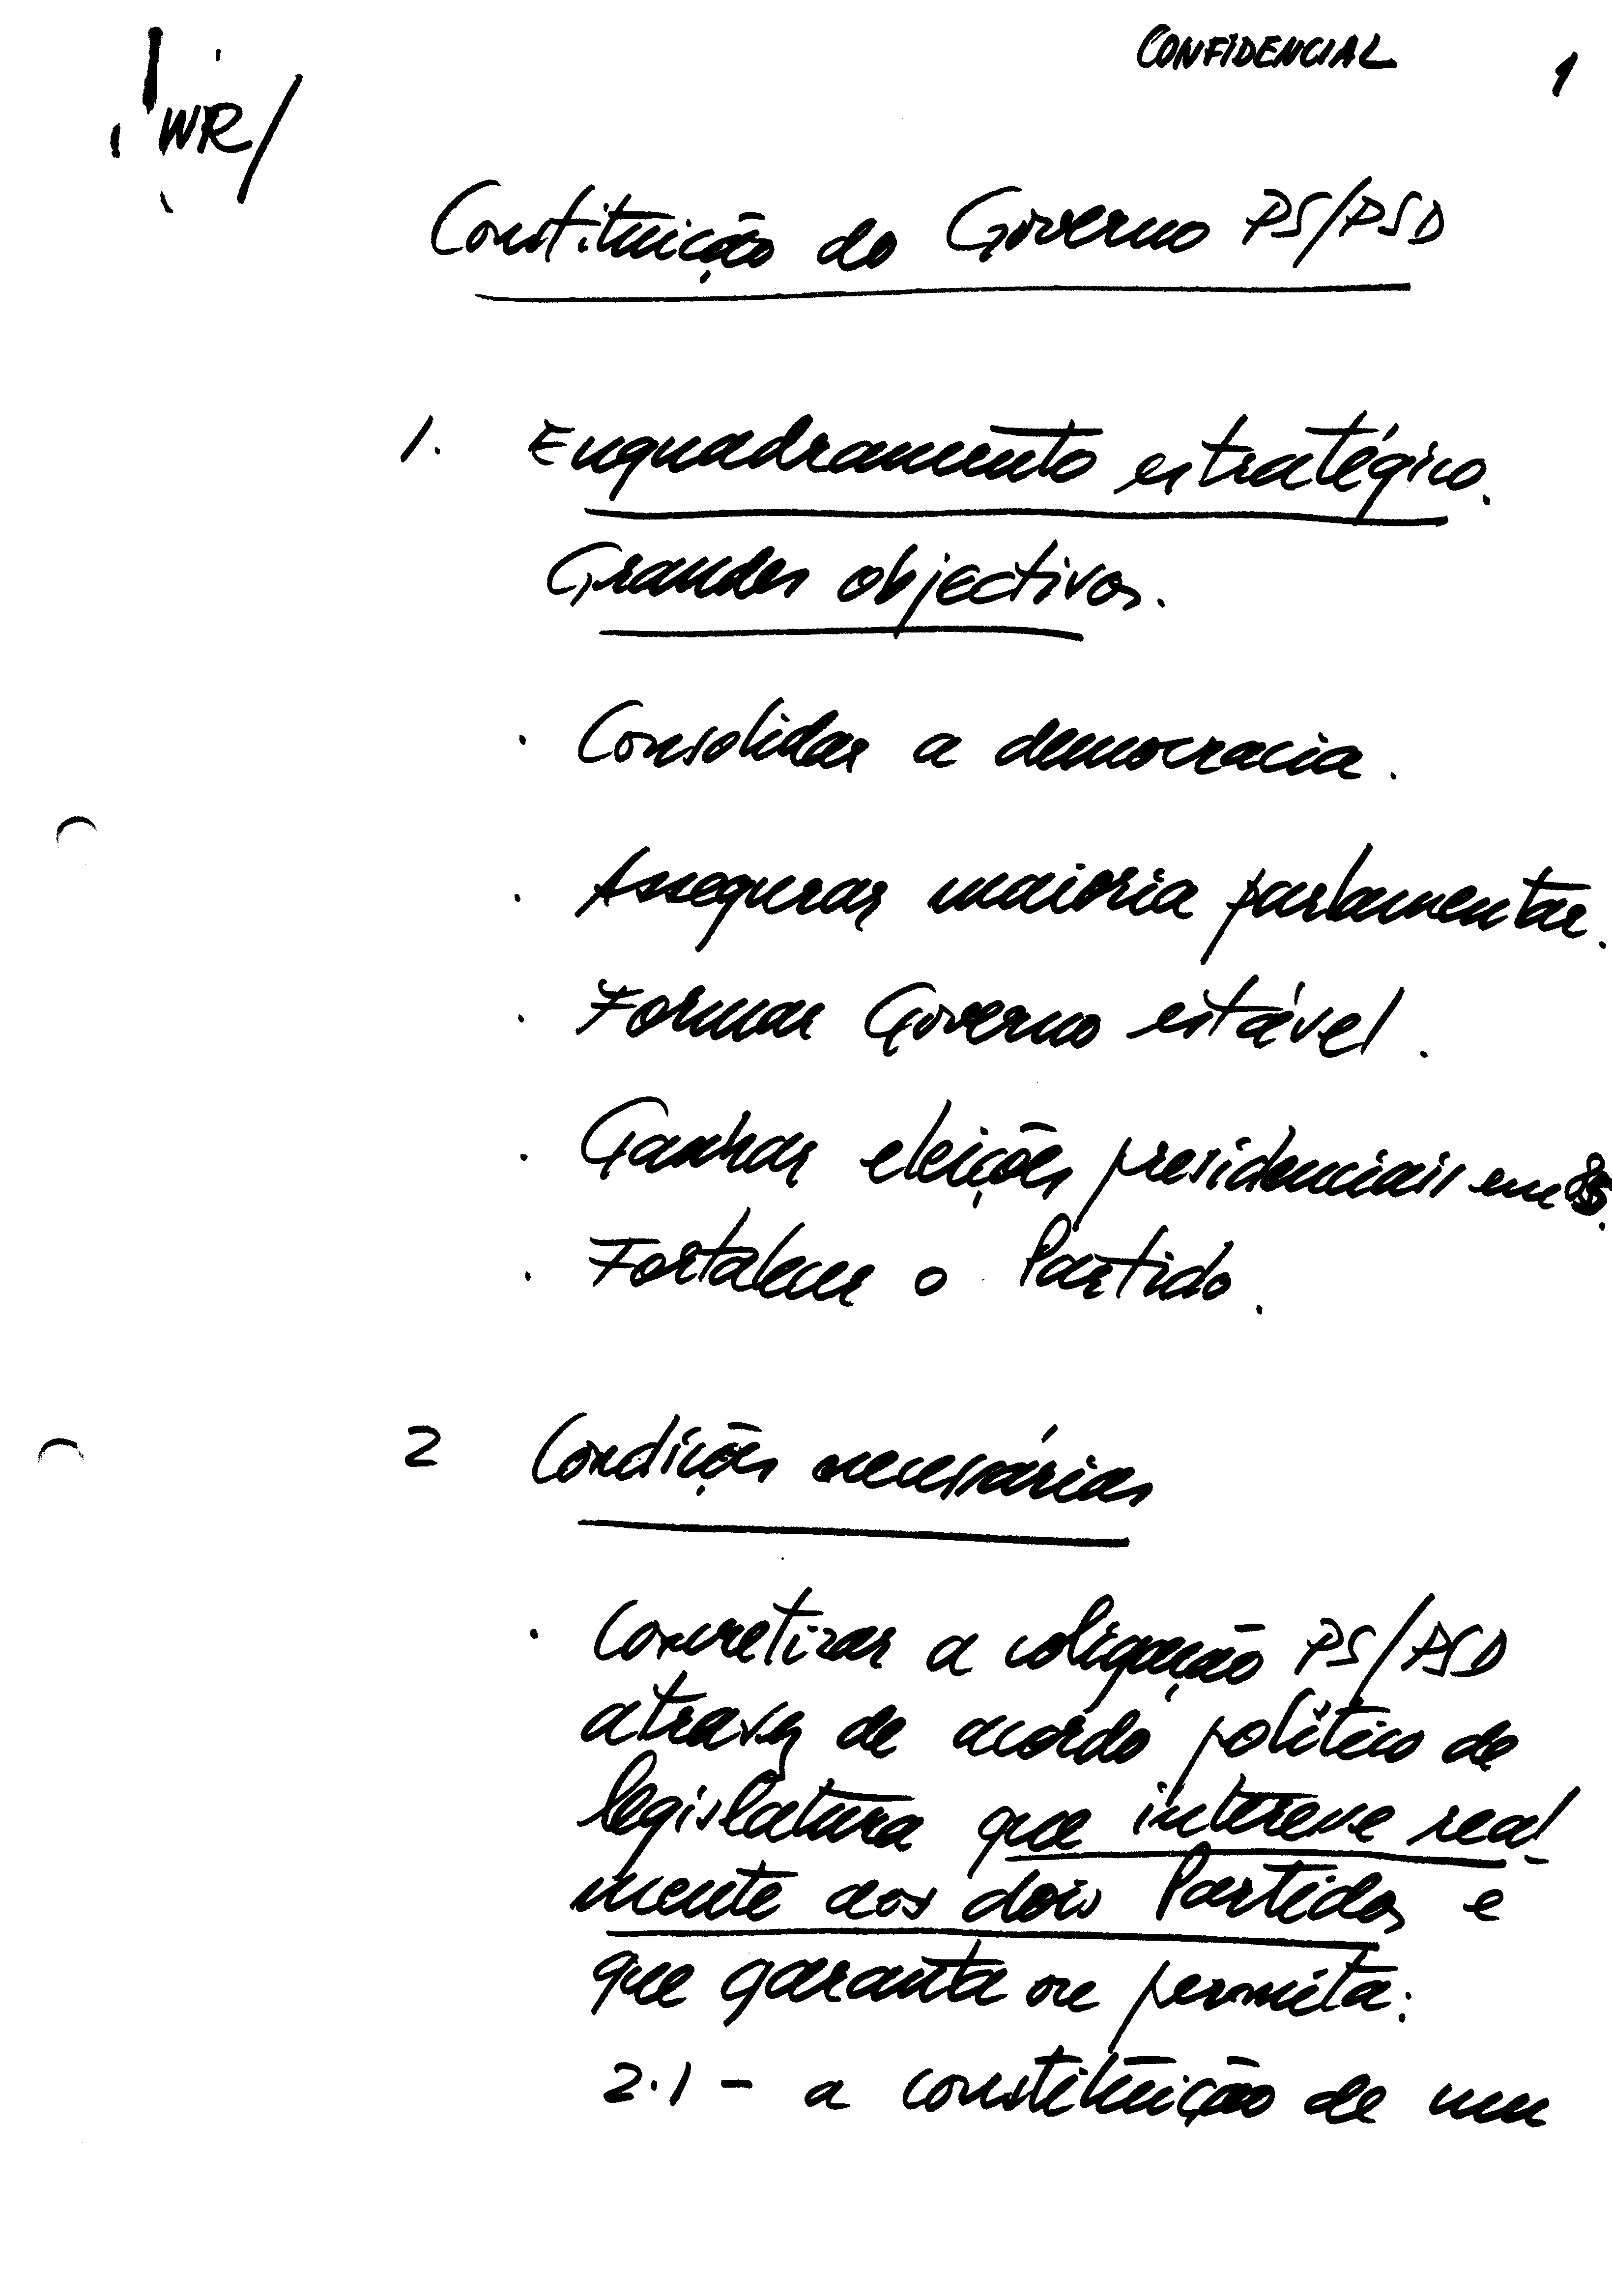 CONFIDENCIAL 1
WR/
Constituição do Governo PS/PSD
1. Enquadramento estratégico.
Grandes objectivos.
· Consolidar a democracia.
· Assegurar maioria parlamentar.
· Formar Governo estável.
· Ganhar eleições presidenciais em 85.
· Fortalecer o Partido.
2 Condições necessárias
· Concretizar a coligação PS/PSD
através de acordo político de
legislatura que interesse real-
mente aos dois Partidos e
que garanta ou permita:
2.1 - a constituição de um